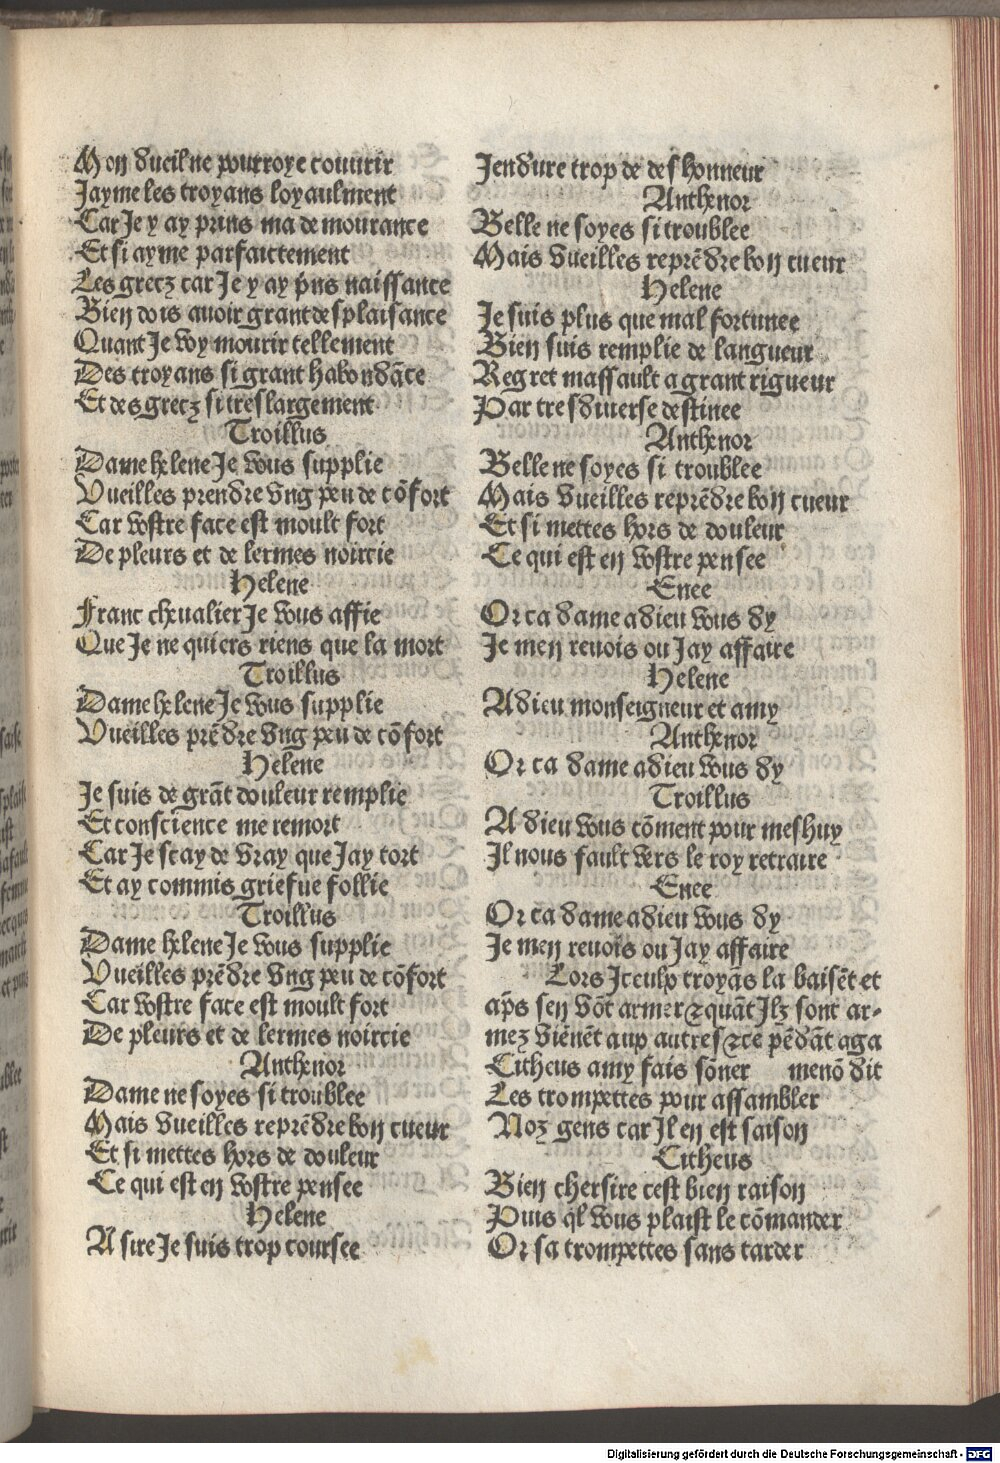 Mon dueil ne pourroye couurir
Jayme les troyans loyaulment
Car Je y ay prins ma demourance
Et si ayme parfaictement
Les grecz car Je y ay p̃ns naissance
Bien dois auoir grant desplaisance
Quant Je voy mourir tellement
Des troyans si grant habondãce
Et des grecz si tres largement
Troillus
Dame helene Je vous supplie
Vueilles prendre vng peu de cõfort
Car vostre face est moult fort
De pleurs et de lermes noircie
Helene
Franc cheualier Je vous affie
Que Je ne quiers riens que la mort
Troillus
Dame helene Je vous supplie
Vueilles prẽdre vng peu de cõfort
Helene
Je suis de grãt douleur remplie
Et conscience me remort
Car Je scay de vray que Jay tort
Et ay commis griefue follie
Troillus
Dame helene Je vous supplie
Vueilles prẽdre vng peu de cõfort
Car vostre face est moult fort
De pleurs et de lermes noircie
Anthenor
Dame ne soyes si troublee
Mais vueilles reprẽdre bon cueur
Et si mettes hors de douleur
Ce qui est en vostre pensee
Helene
A sire Je suis trop coursee
Jendure trop de deshonneur
Anthenor
Belle ne soyes si troublee
Mais vueilles reprẽdre bon cueur
Helene
Je suis plus que mal fortunee
Bien suis remplie de langueur
Regret massault a grant rigueur
Par tres diuerse destinee
Anthenor
Belle ne soyes si troublee
Mais vueilles reprẽdre bon cueur
Et si mettes hors de douleur
Ce qui est en vostre pensee
Enee
Or ca dame adieu vous dy
Je men reuois ou Jay affaire
Helene
Adieu monseigneur et amy
Anthenor
Or ca dame adieu vous dy
Troillus
Adieu vous cõment pour meshuy
Il nous fault vers le roy retraire
Enee
Or ca dame adieu vous dy
Je men reuois ou Jay affaire
Lors Jceulx troyãs la baisẽt et
ap̃s sen võt armer ⁊ quãt Jlz sont ar-
mez viẽnẽt aux autres ⁊ ce pẽdãt aga
Citheus amy fais sõner menõ dit
Les trompettes pour assambler
Noz gens car Jl en est saison
Citheus
Bien cher sire cest bien raison
Puis q̃l vous plaist le cõmander
Or sa trompettes sans tarder
Digitalisierung gefördert durch die Deutsche Forschungsgemeinschaft - DFG